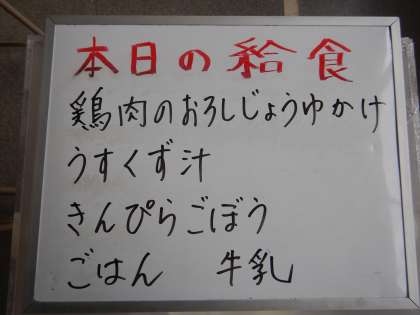 本日の給食
鶏肉のおろしじょうゆかけ
うすくず汁
きんぴらごぼう
ごはん　牛乳